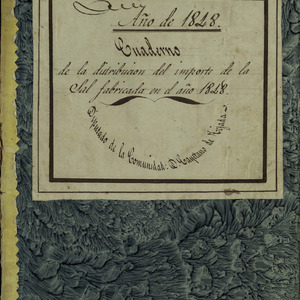 Año de 1848.
Cuaderno
de la distribucion del importe de la
Sal fabricada en el año 1848
Diputado de la Comunidad: D. Cayetano de Tejada